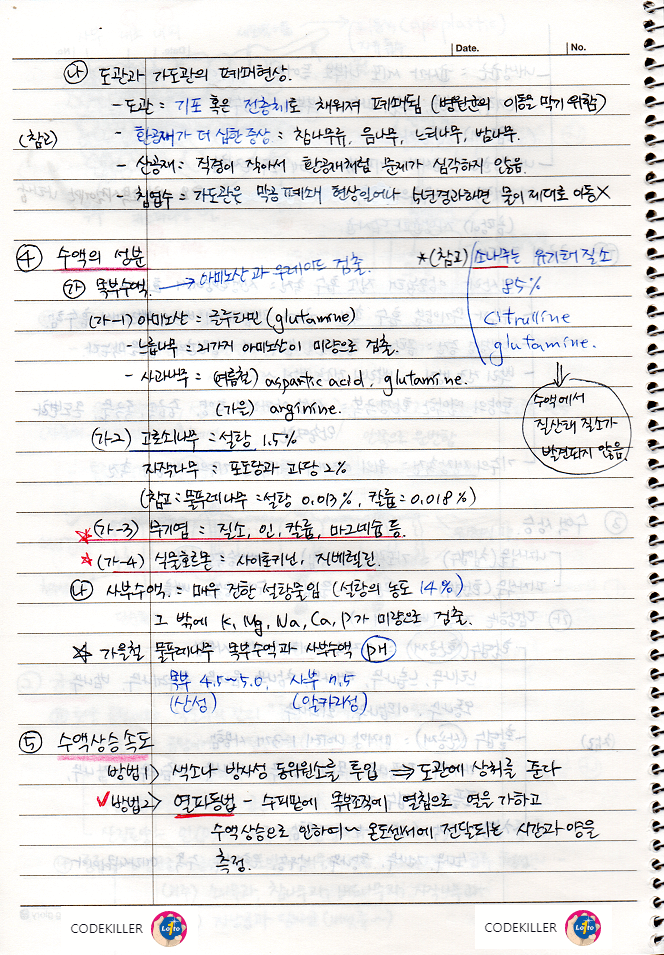 Date.
No.
㉯ 도관과 가도관의 폐쇄현상.
- 도관 : 기포 혹은 전충체로 채워져 폐쇄됨 (병원균의 이동을 막기 위함)
(참고) - 환공재가 더 심한 증상 : 참나무류, 음나무, 느티나무, 밤나무.
- 산공재 : 직경이 작아서 환공재처럼 문제가 심각하지 않음.
- 침엽수 : 가도관은 막공폐쇄 현상있어나 년경과하면 물이 제대로 이동×
④ 수액의 성분
㉮ 목부수액. → 아미노산과 우레이드 검출.
(가-1) 아미노산 = 글루타민 (glutamine)
- 느릅나무 = 21가지 아미노산이 미량으로 검출.
- 사과나무 = (여름철) aspartic acid, glutamine.
(가을) arginine.
★(참고) 소나무는 유기태 질소
85%
citrulline
glutamine.
⇓
수액에서
질산태 질소가
발견되지 않음.
(가-2) 고로쇠나무 = 설탕 1.5%
자작나무 = 포도당과 과당 2%
(참고 : 물푸레나무 = 설탕 0.013%, 칼륨 = 0.018%)
★ (가-3) 무기염 = 질소, 인, 칼륨, 마그네슘 등.
★ (가-4) 식물호르몬 = 사이토키닌, 지베렐린.
㉯ 사부수액. = 매우 진한 설탕물임 (설탕의 농도 14%)
그 밖에 K, Mg, Na, Ca, P가 미량으로 검출.
★ 가을철 물푸레나무 목부수액과 사부수액 pH
목부 4.5~5.0, 사부 7.5
(산성) (알카리성)
⑤ 수액상승속도
방법1> 색소나 방사성 동위원소를 투입 ⇒ 도관에 상처를 준다
✓방법2> 열파동법 - 수피밑에 목부조직에 열침으로 열을 가하고
수액상승으로 인하여 온도센서에 전달되는 시간과 양을
측정.
CODEKILLER Lotto
CODEKILLER Lotto